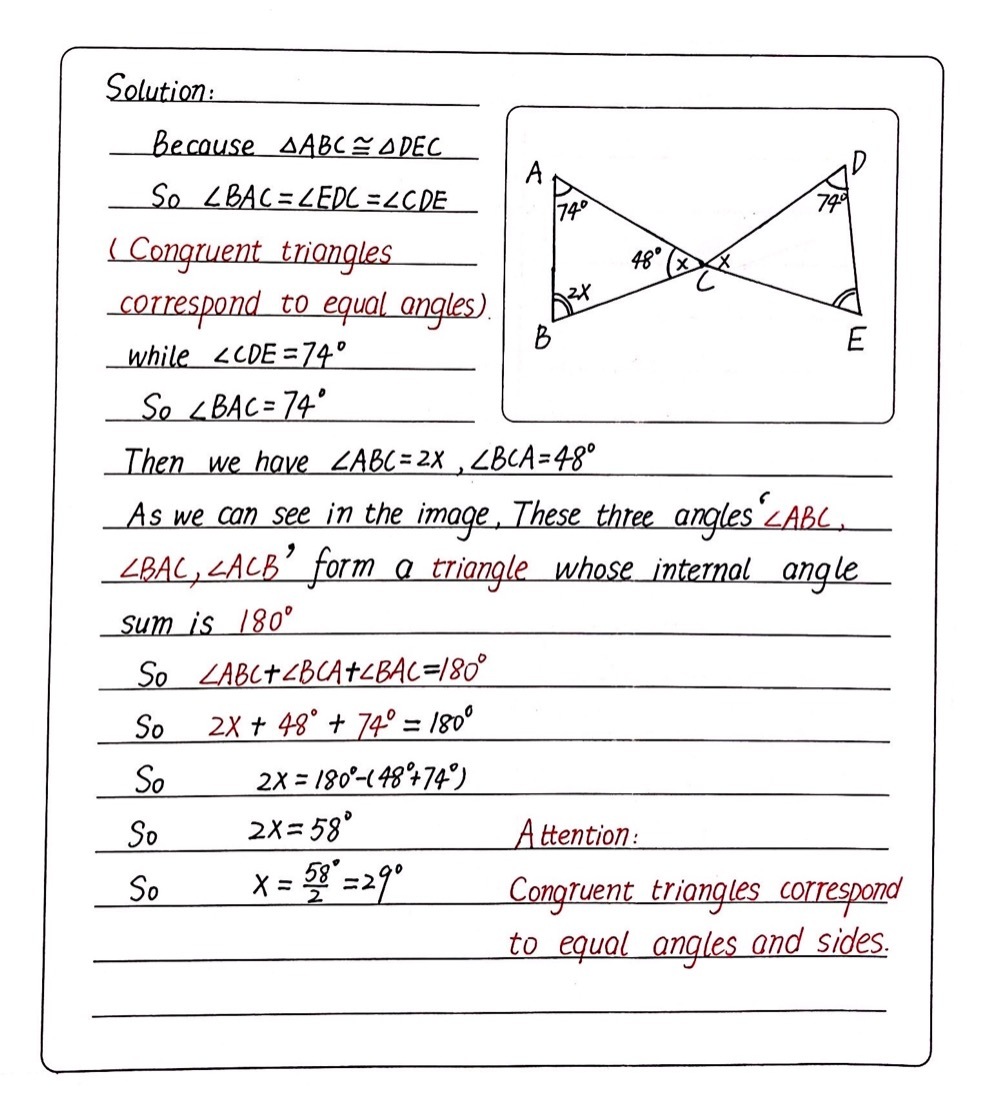 Solution:
Because △ABC≅△DEC
So ∠BAC=∠EDC=∠CDE
(Congruent triangles
correspond to equal angles).
while ∠CDE=74°
So ∠BAC=74°
A
D
74°
74°
48°
x
x
C
2X
B
E
Then we have ∠ABC=2X, ∠BCA=48°
As we can see in the image, These three angles ‘∠ABC,
∠BAC, ∠ACB’ form a triangle whose internal angle
sum is 180°
So ∠ABC+∠BCA+∠BAC=180°
So 2X + 48° + 74° = 180°
So 2X=180°-(48°+74°)
So 2X=58°
So X=58°/2=29°
Attention:
Congruent triangles correspond
to equal angles and sides.